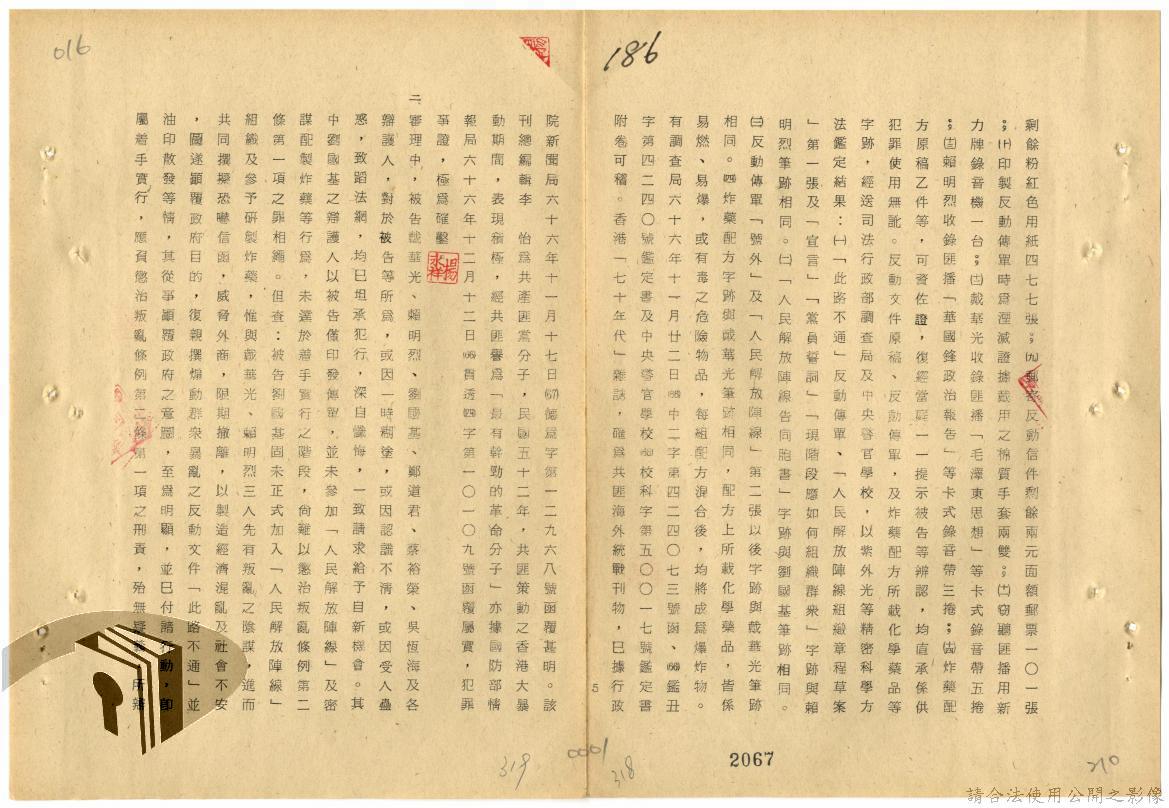 016
186
剩餘粉紅色用紙四七七張;㈨郵寄反動信件剩餘兩元面額郵票一〇一張
;㈩印製反動傳單時爲湮滅證據戴用之棉質手套兩雙;㈪竊聽匪播用新
力牌錄音機一台;㈫戴華光收錄匪播「毛澤東思想」等卡式錄音帶五捲
;賴明烈收錄匪播「華國鋒政治報告」等卡式錄音帶三捲;炸藥配
方原稿乙件等,可資佐證,復經當庭一一提示被告等辨認,均直承係供
犯罪使用無訛。反動文件原稿、反動傳單,及炸藥配方所載化學藥品等
字跡,經送司法行政部調查局及中央警官學校,以紫外光等精密科學方
法鑑定結果:㈠「此路不通」反動傳單、「人民解放陣線組織章程草案
」第一張及「宣言」「黨員誓詞」「現階段應如何組織群衆」字跡與賴
明烈筆跡相同。㈡「人民解放陣線告同胞書」字跡與劉國基筆跡相同。
㈢反動傳單「號外」及「人民解放陣線」第二張以後字跡與戴華光筆跡
相同。㈣炸藥配方字跡與戴華光筆跡相同,配方上所載化學藥品,皆係
易燃、易爆,或有毒之危險物品,每組配方混合後,均將成爲爆炸物。
有調查局六十六年十一月廿二日(66)中二字第四二四〇七三號函、(66)鑑丑
字第四二四〇號鑑定書及中央警官學校(66)校科字第五〇〇一七號鑑定書
附卷可稽。香港「七十年代」雜誌,確爲共匪海外統戰刊物,已據行政
5
院新聞局六十六年十一月十七日(67)德爲字第一二九六八號函覆甚明。該
刊總編輯李 怡爲共產匪黨分子,民國五十二年,共匪策動之香港大暴
動期間,表現積極,經共匪譽爲「最有幹勁的革命分子」亦據國防部情
報局六十六年十二月十二日(66)貫透㈣字第一〇一〇九號函覆屬實,犯罪
事證,極爲確鑿。
二、審理中,被告戴華光、賴明烈、劉國基、鄭道君、蔡裕榮、吳恆海及各
辯護人,對於被告等所爲,或因一時糊塗,或因認識不清,或因受人蠱
惑,致蹈法網,均已坦承犯行,深自懺悔,一致請求給予自新機會。其
中劉國基之辯護人以被告僅印發傳單,並未參加「人民解放陣線」及密
謀配製炸藥等行爲,未達於着手實行之階段,尚難以懲治叛亂條例第二
條第一項之罪相繩。但查:被告劉國基固未正式加入「人民解放陣線」
組織及參予研製炸藥,惟與戴華光、賴明烈三人先有叛亂之陰謀,進而
共同撰擬恐嚇信函,威脅外商,限期撤離,以製造經濟混亂及社會不安
,圖遂顛覆政府目的,復親撰煽動群衆暴亂之反動文件「此路不通」並
油印散發等情,其從事顛覆政府之意圖,至爲明顯,並已付諸行動,卽
屬着手實行,應負懲治叛亂條例第二條第一項之刑責,殆無疑義,所辯
319
0001
318
2067
210
請合法使用公開之影像